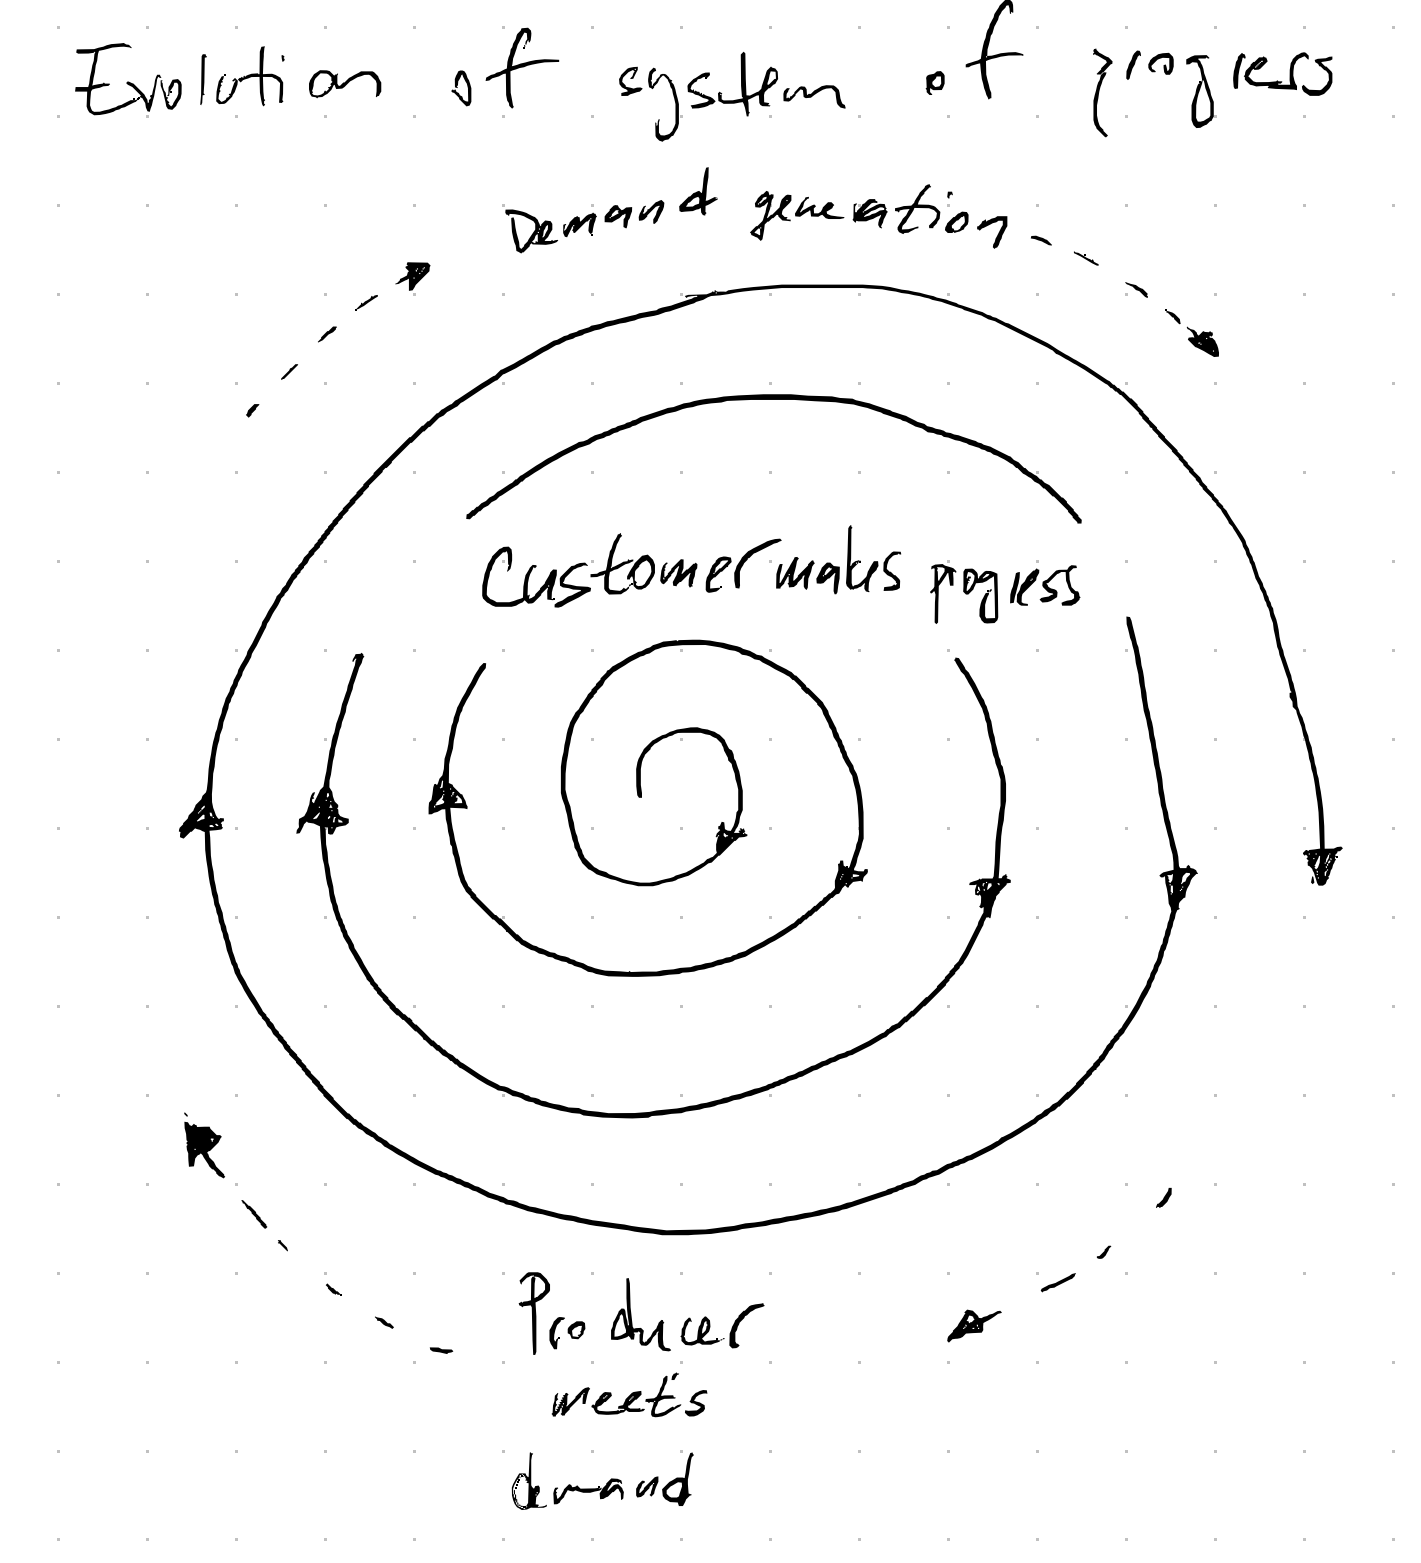 Evolution of system of progress
Demand generation
Customer makes progress
Producer
meets
demand